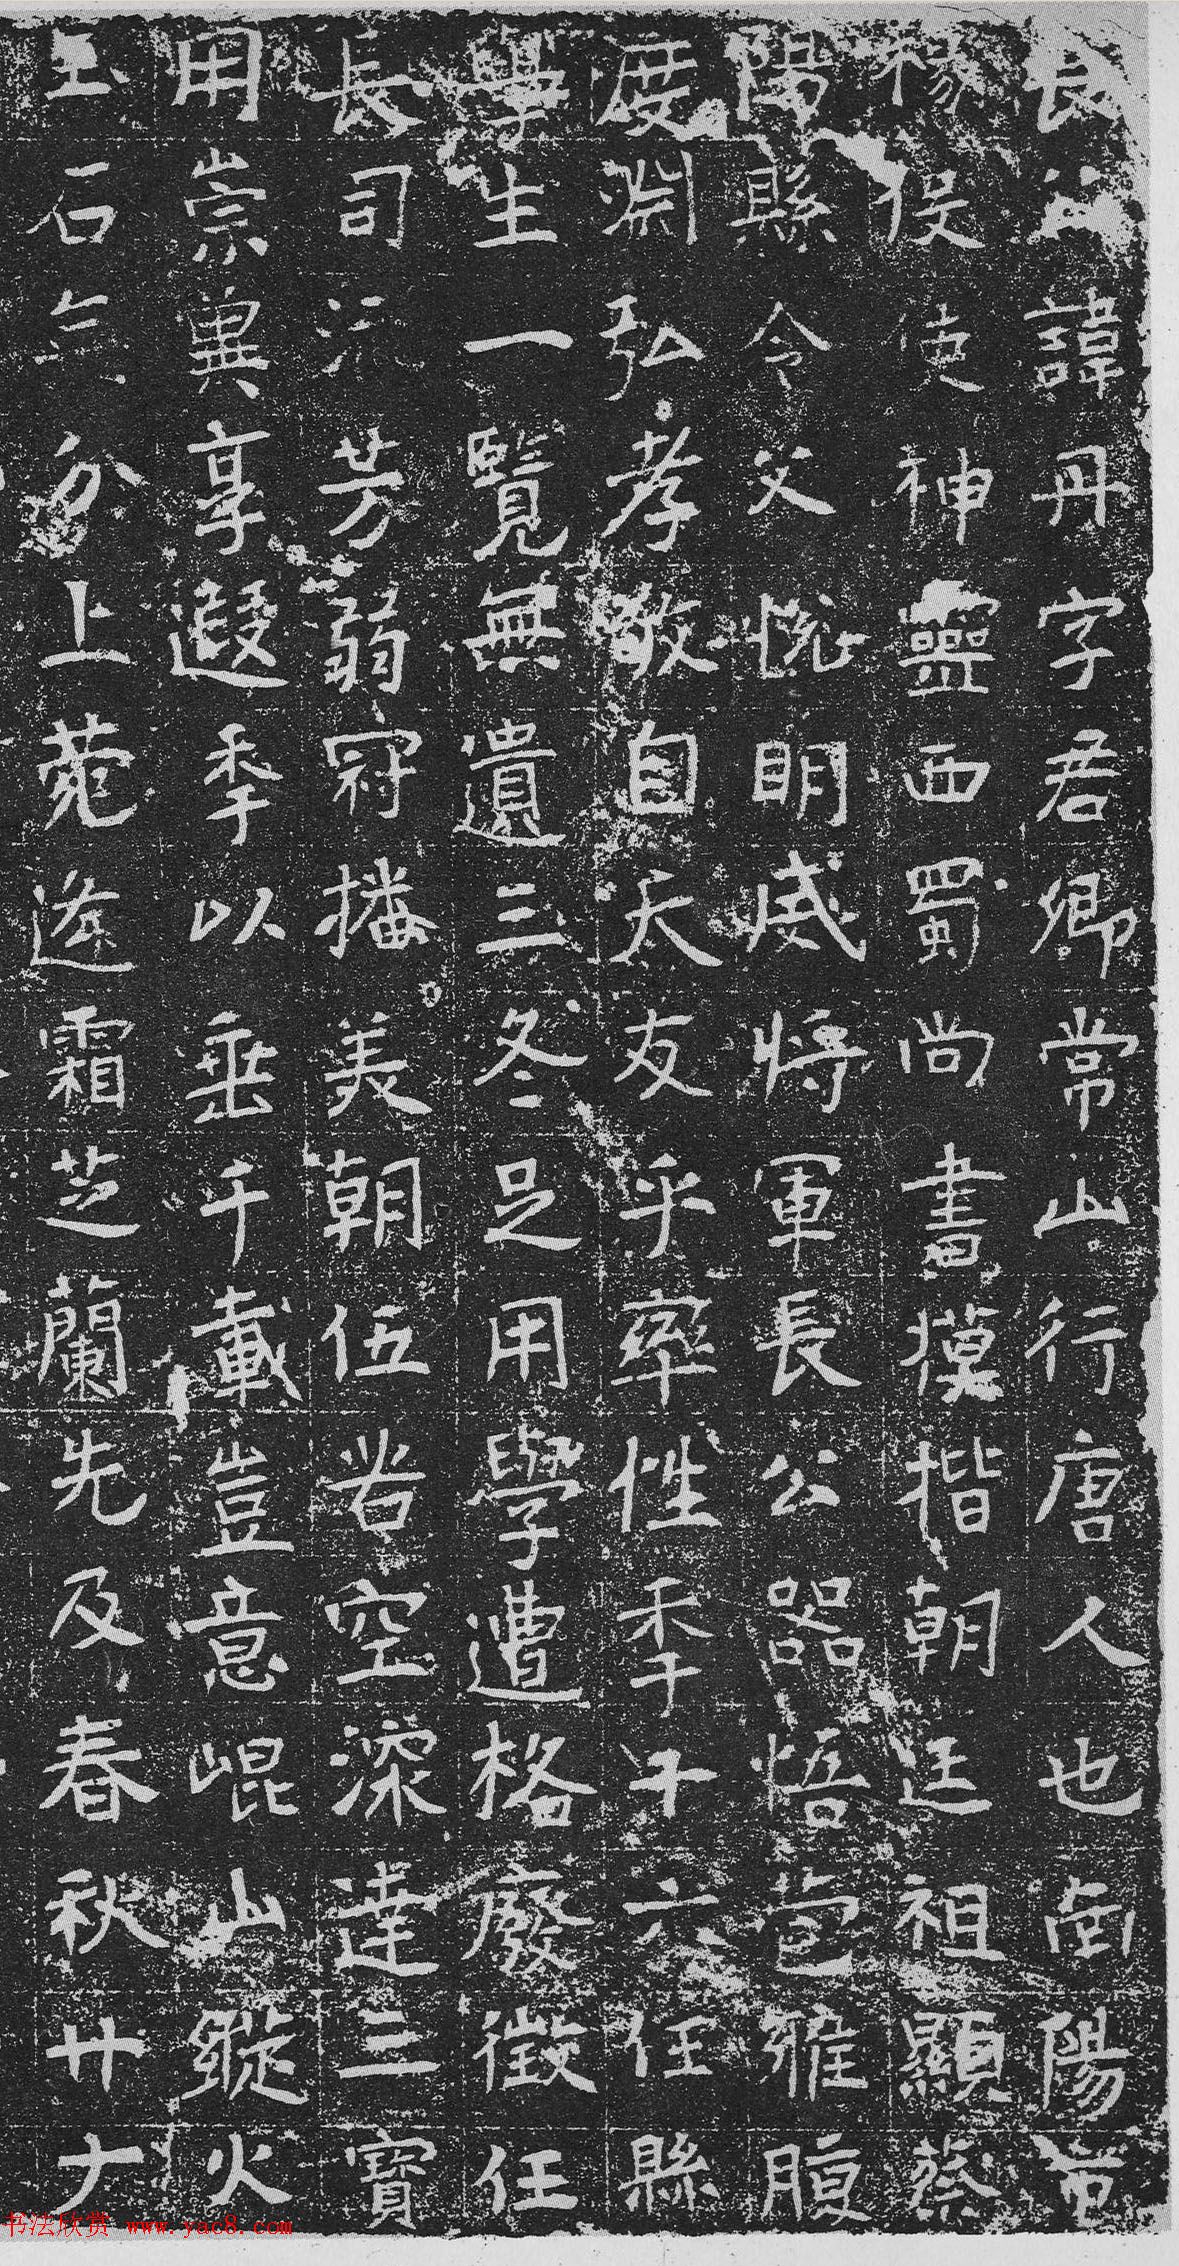 長公諱丹字君卿常山行唐人也南陽
楊侯使神靈西蜀尚書模楷朝廷祖顯蔡
陽縣令父悦明威將軍長公器悟苞雅腹
度淵弘孝敬自天友乎率性秊十六任縣
學生一覽無遺三冬足用學遭格廢徵任
長司流芳弱冠播美朝伍咎空深達三寶
用崇冀享遐秊以垂千載豈意崐山縱火
玉石無分上菀遙霜芝蘭先及春秋廿九
书法欣赏 www.yac8.com